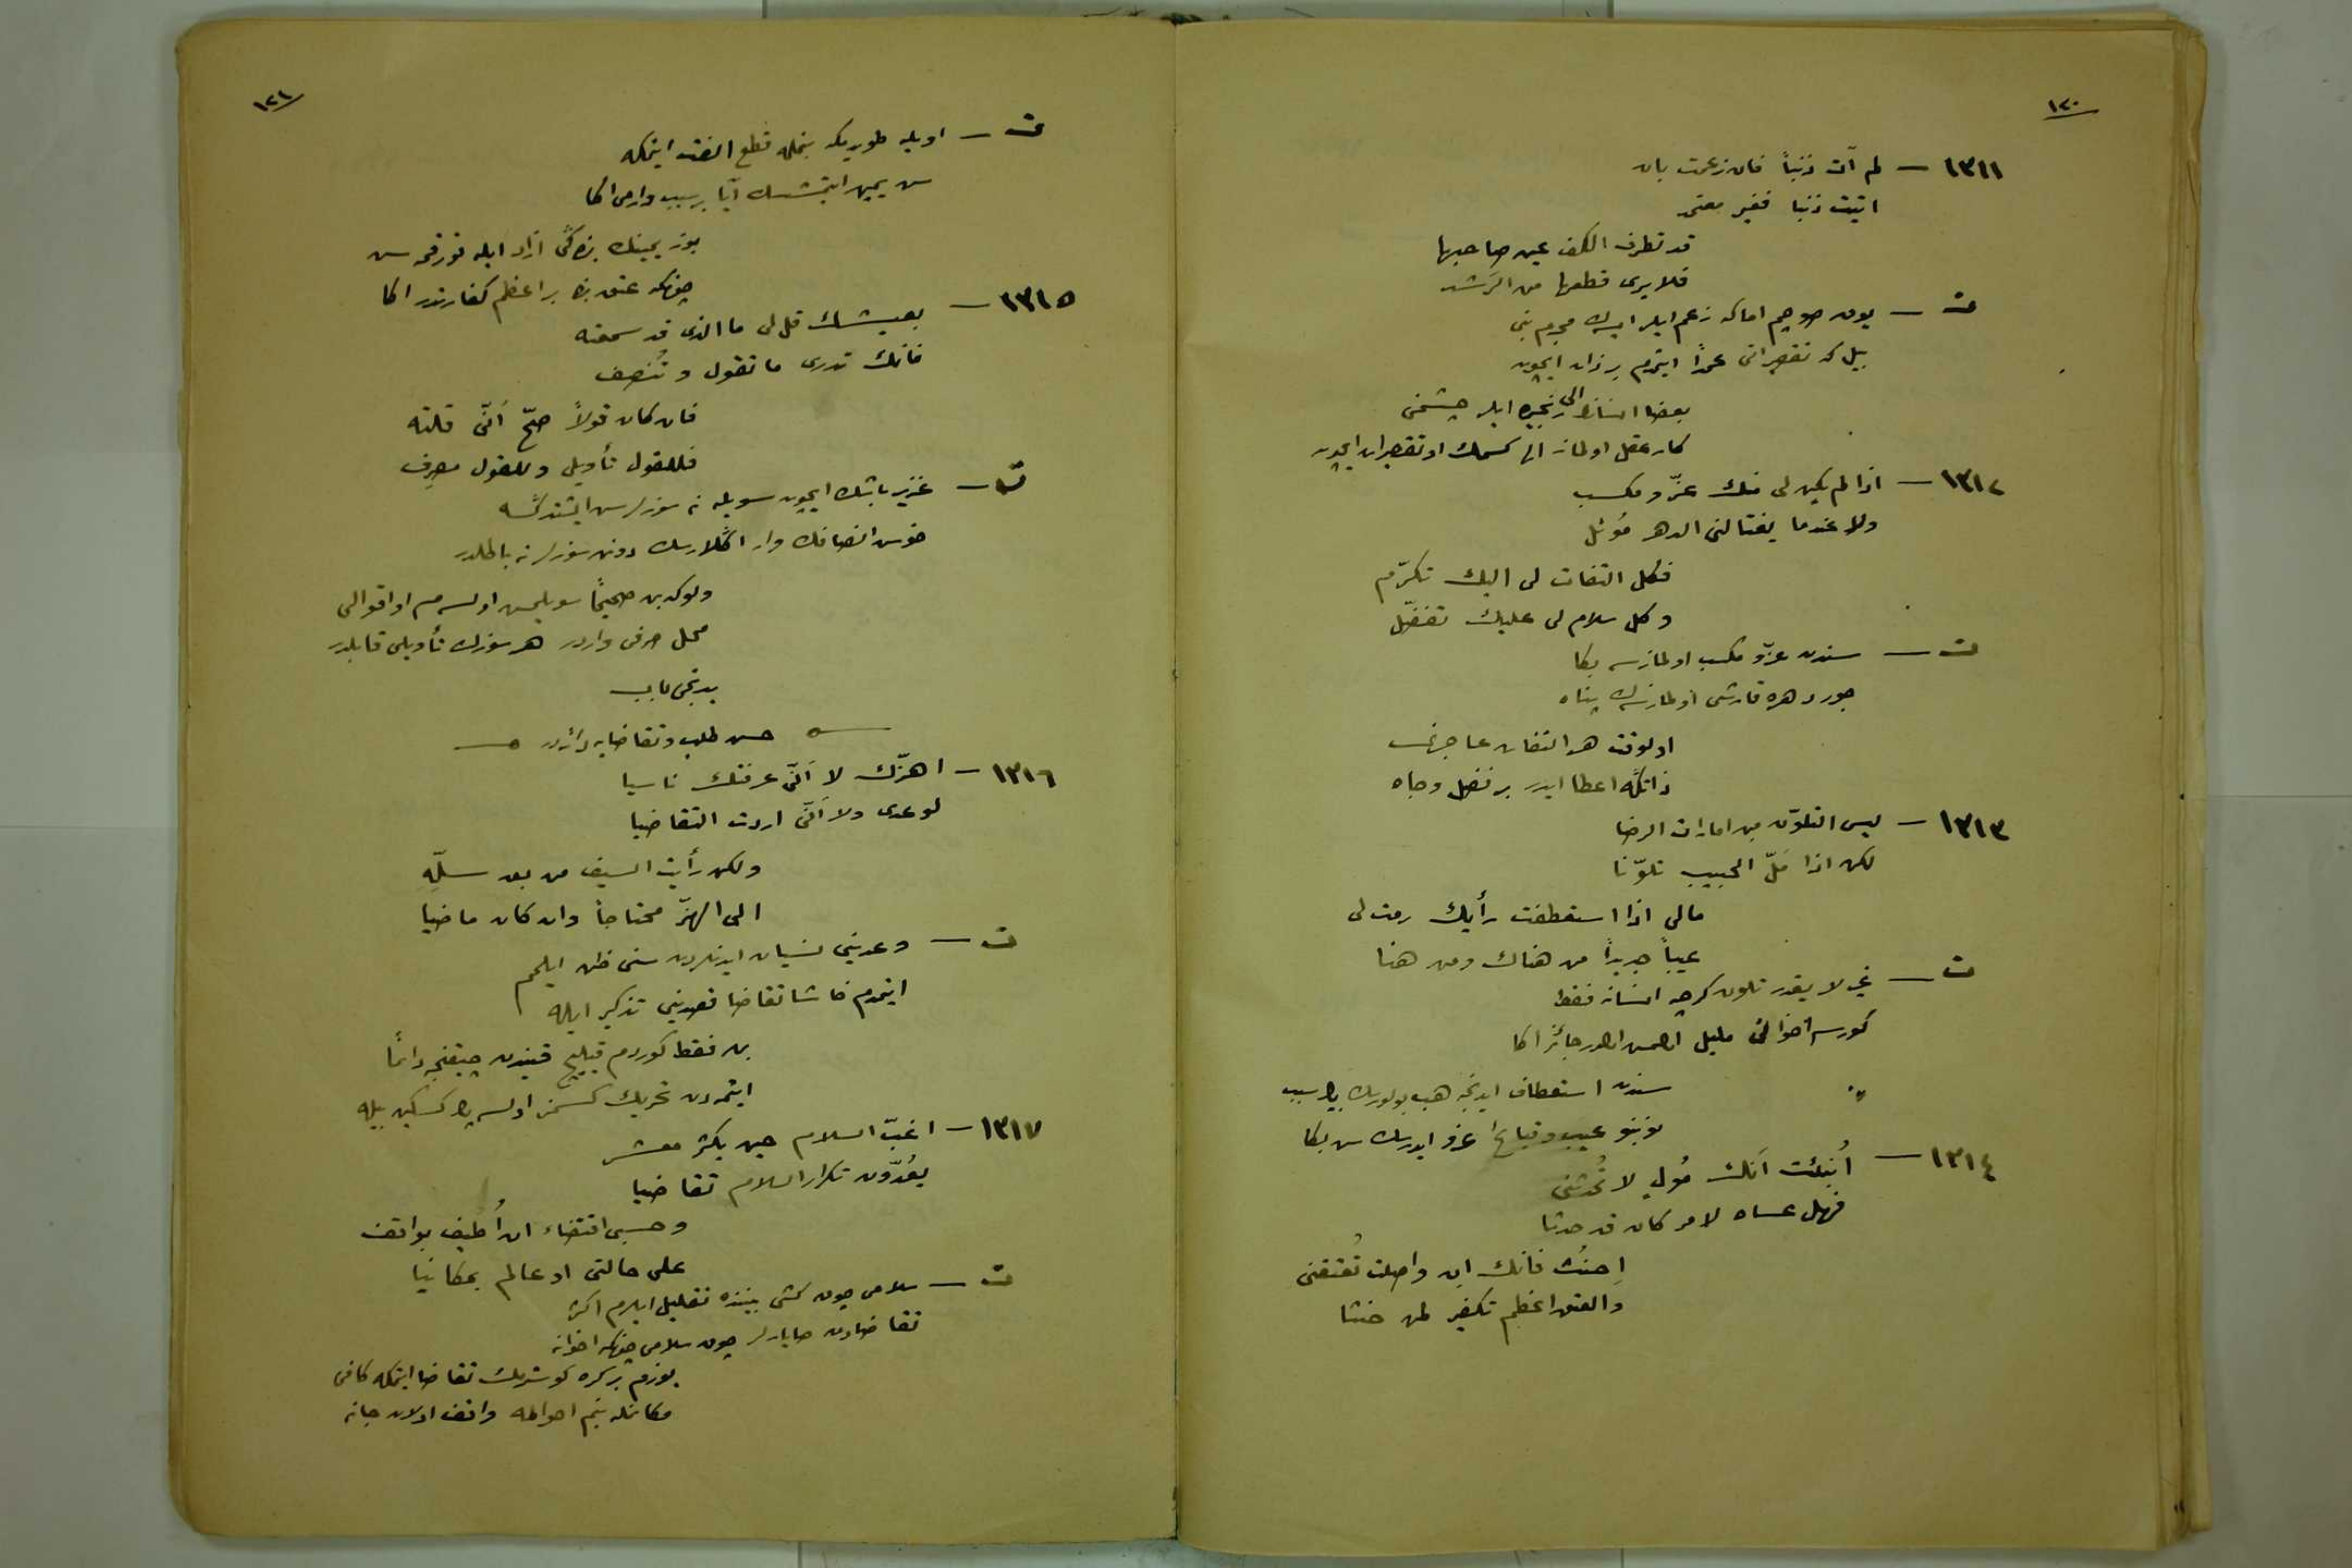 ١٢٠
١٣١١ — لم آت ذنباً فان زعمت بان
اتيت ذنبا فغير معتمد
قد تطرف الكف عين صاحبها
فلا يرى قطعها من الرَشد
ت — يوق صوچم اما كه زعم ايلر ايسك مجرم بنى
بيل كه تقصيراتى عمداً ايتمدم بر ذات ايچون
بعضا انسانك الى رنجيده ايلر چشمنى
كار عقل اولماز الى كسمك او تقصيرات ايچون
١٣١٢ — اذا لم يكن لى منك عزّ و مكسب
ولا عندما يغتالنى الدهر مُوئل
فكل التفات لى اليك تكرّم
وكل سلام لى عليك تفضّل
ت — سندن عزّ و مكسب اولمازسه بكا
جور دهره قارشى اولمازسك پناه
اولوقت هر التفات عاجزى
ذاتكه اعطا ايدر بر فضل وجاه
١٣١٣ — ليس التلوّن من امارات الرضا
لكن اذا مَلّ الحبيب تلوّنا
مالى اذا استعطفت رأيك رمت لى
عيباً جديداً من هناك ومن هنا
ت — غير لايقدر تلون كرچه انسانه فقط
كورسه اخوانى ملول اولمسى اولور جائز اكا
سندن استعطاف ايدنجه هب بولورسك بر سبب
نوبنو عيب و قباحه عزو ايدرسك سن بكا
١٣١٤ — اُنبئت اَنك مُولٍ لا تُحدثنى
فهل عساه لامر كان قد حدثا
اِحنث فانك ان واصلت تُعتقنى
والعتق اعظم تكفير لمن حنثا
١٢١
ت — اويله طويدمكه بنمله قطع الفت ايتمكه
سن يمين ايتمشسك آيا بر سبب وارمى اكا
بوز يمينك بنده كى ازاد ايله قورقمه سن
چونكه عتق بنده بر اعظم كفارتدر اكا
١٣١٥ — بعيشك قل لى ما الذى قد سمعته
فانك تدرى ما تقول و تُنصف
فان كان قولاً صحّ اَنّى قلته
فللقول تأويل وللقول مصرف
ت — عزيز باشك ايچون سويله نه سوزلر سن ايشتدكسه
خوس انصافك وار اكلارسك دونن سوزلر نه باطلدر
ولوكه بن صحيحاً سويلمش اولسه م او اقوالى
محل صرفى واردر هر سوزك تأويلى قابلدر
يدنجى باب
حسن طلب و تقاضايه دائردر
١٣١٦ — اهزّك لا اَنّى عرفتك ناسيا
لوعدى ولا اَنّى اردت التقاضيا
ولكن رأيت السيف من بعد سلّه
الى الهزّ محتاجاً وان كان ماضيا
ت — وعدينى نسيان ايدنلردن سنى ظن ايلمم
ايتمدم حاشا تقاضا قصدينى تذكير ايله
بن فقط كوردم قيليج قينندن چيقنجه دائما
ايتمه دن تحريك كسمز اولسه ده كسكين بيله
١٣١٧ — اغبّ السلام حين يكثر معشر
يعُدّون تكرار السلام تقاضيا
وحسبى اقتضاء ان اُطيف بواقف
على حالتى او عالم بمكانيا
ت — سلامى چوق كشى بيننده تقليل ايلرم اكثر
تقاضادن صايارلر چوق سلامى چونكه اخوانه
يوزم بر كره كوسترمك تقاضا ايتمكه كافى
مكانمله بنم احوالمه واقف اولان جانه